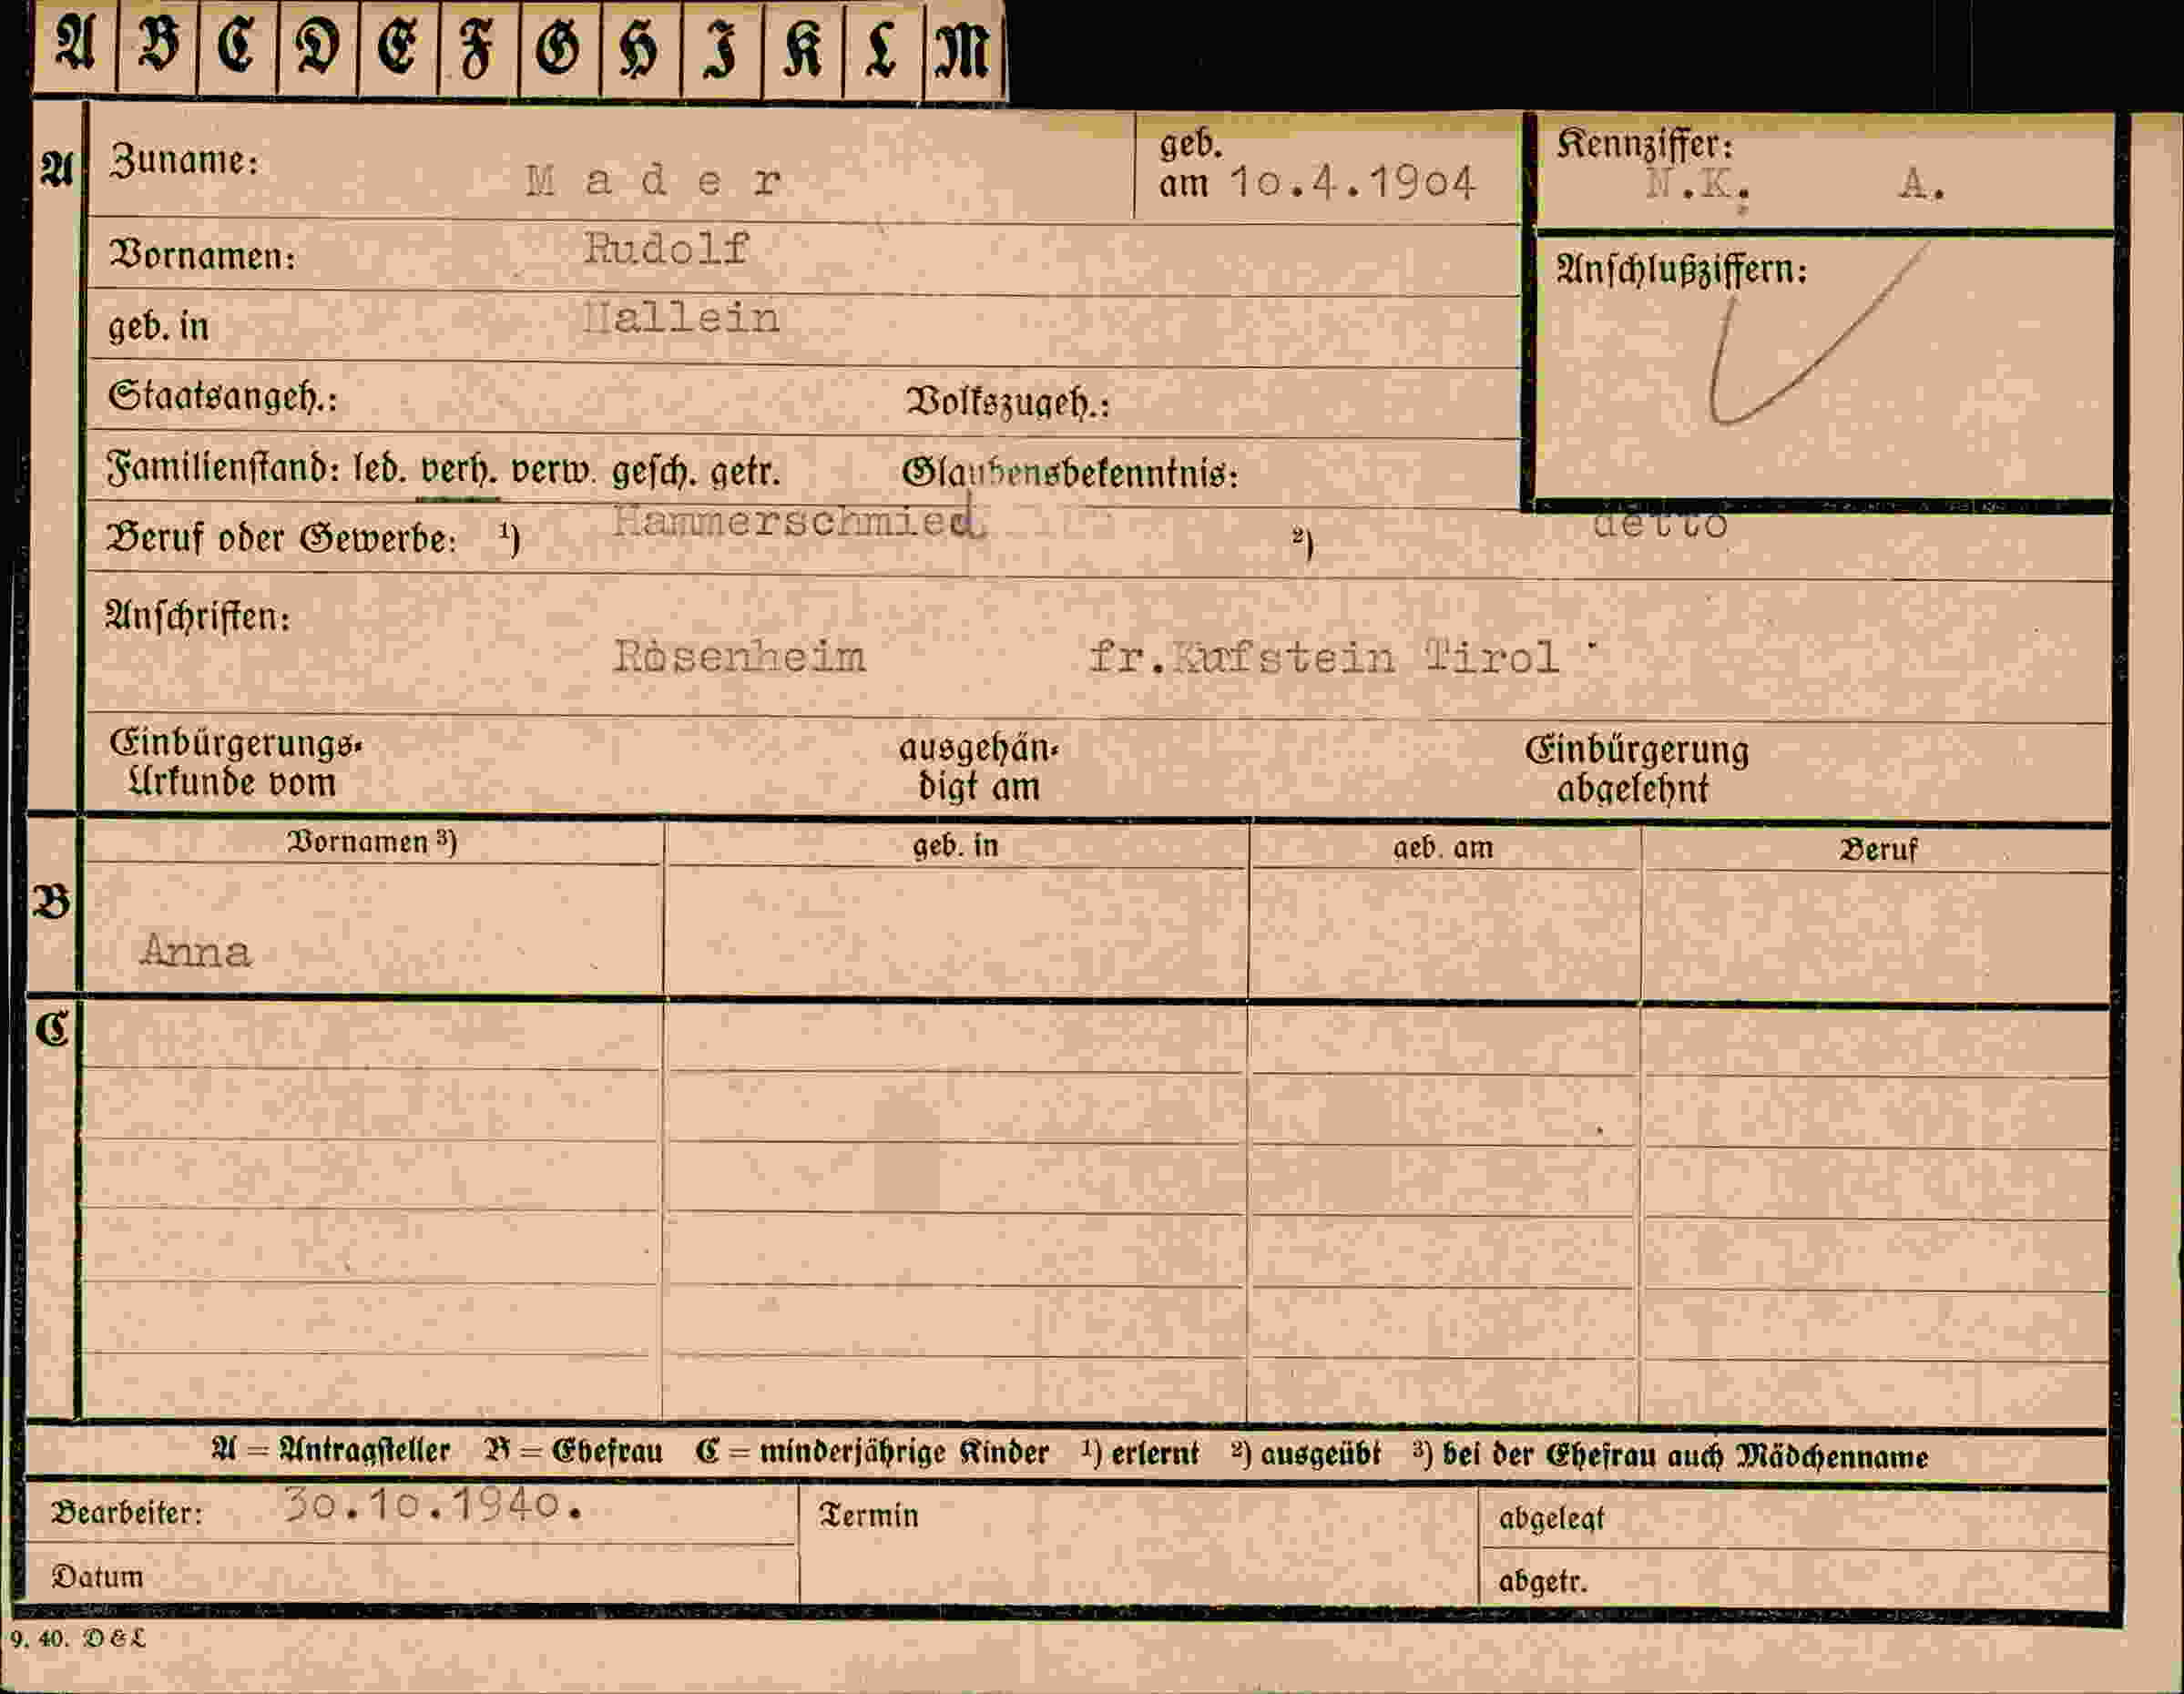 A B C D E F G H I K L M
A Zuname: Mader geb. am 10.4.1904 Kennziffer: N.K. A.
Vornamen: Rudolf
Anschlußziffern:
geb. in Hallein
Staatsangeh.: Volkszugeh.:
Familienstand: led. verh. verw. gesch. getr. Glaubensbekenntnis:
Beruf oder Gewerbe: ¹) Hammerschmied ²) detto
Anschriften:
Rosenheim fr.Kufstein Tirol
Einbürgerungs- ausgehän- Einbürgerung
Urkunde vom digt am abgelehnt
Vornamen ³) geb. in geb. am Beruf
B
Anna
C
A = Antragsteller B = Ehefrau C = minderjährige Kinder ¹) erlernt ²) ausgeübt ³) bei der Ehefrau auch Mädchenname
Bearbeiter: 30.10.1940. Termin abgelegt
Datum abgetr.
9. 40. D & L